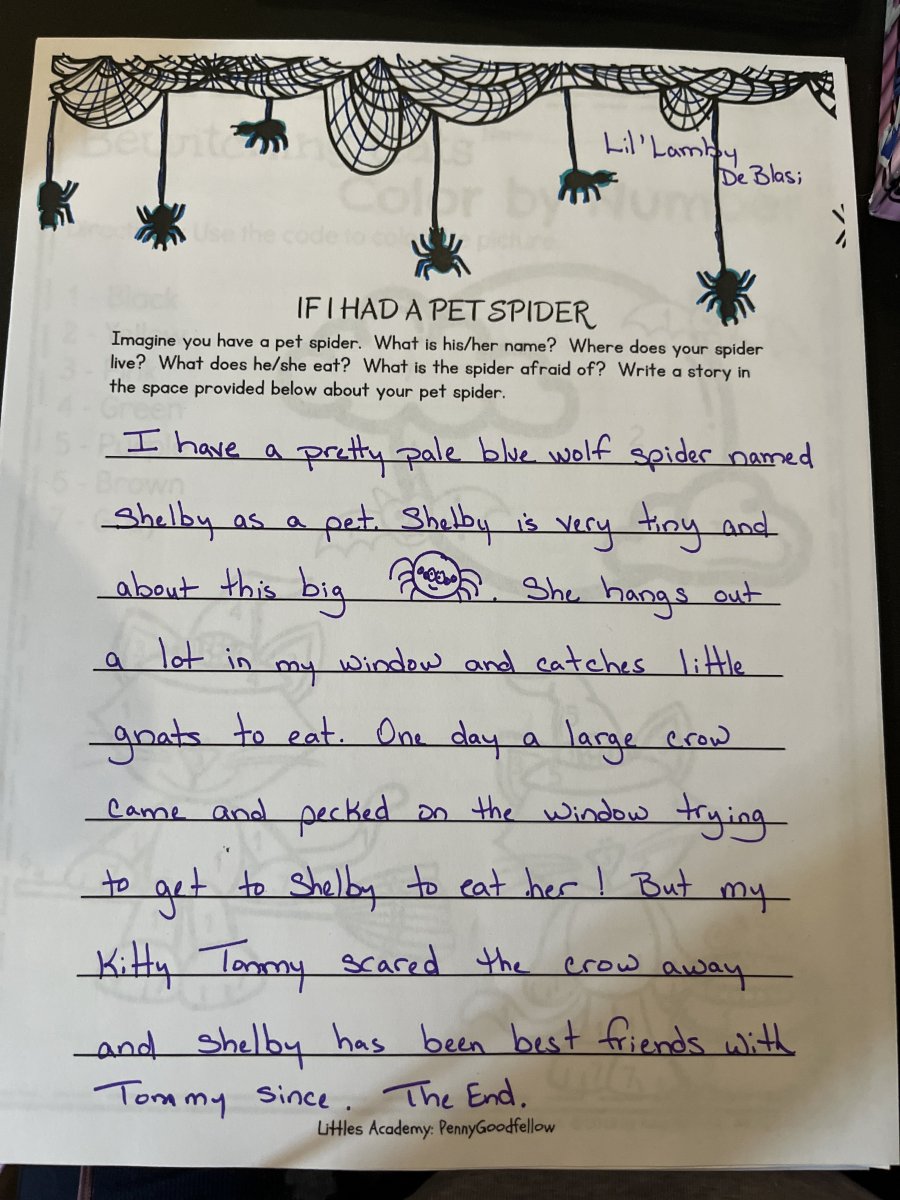 Lil' Lamby
De Blasi
IF I HAD A PET SPIDER
Imagine you have a pet spider. What is his/her name? Where does your spider
live? What does he/she eat? What is the spider afraid of? Write a story in
the space provided below about your pet spider.
I have a pretty pale blue wolf spider named
Shelby as a pet. Shelby is very tiny and
about this big . She hangs out
a lot in my window and catches little
gnats to eat. One day a large crow
came and pecked on the window trying
to get to Shelby to eat her! But my
Kitty Tommy scared the crow away
and Shelby has been best friends with
Tommy since. The End.
Littles Academy: PennyGoodfellow
Color by Number
Use the code to color the picture
1 - Black
4 - Green
5 - Brown